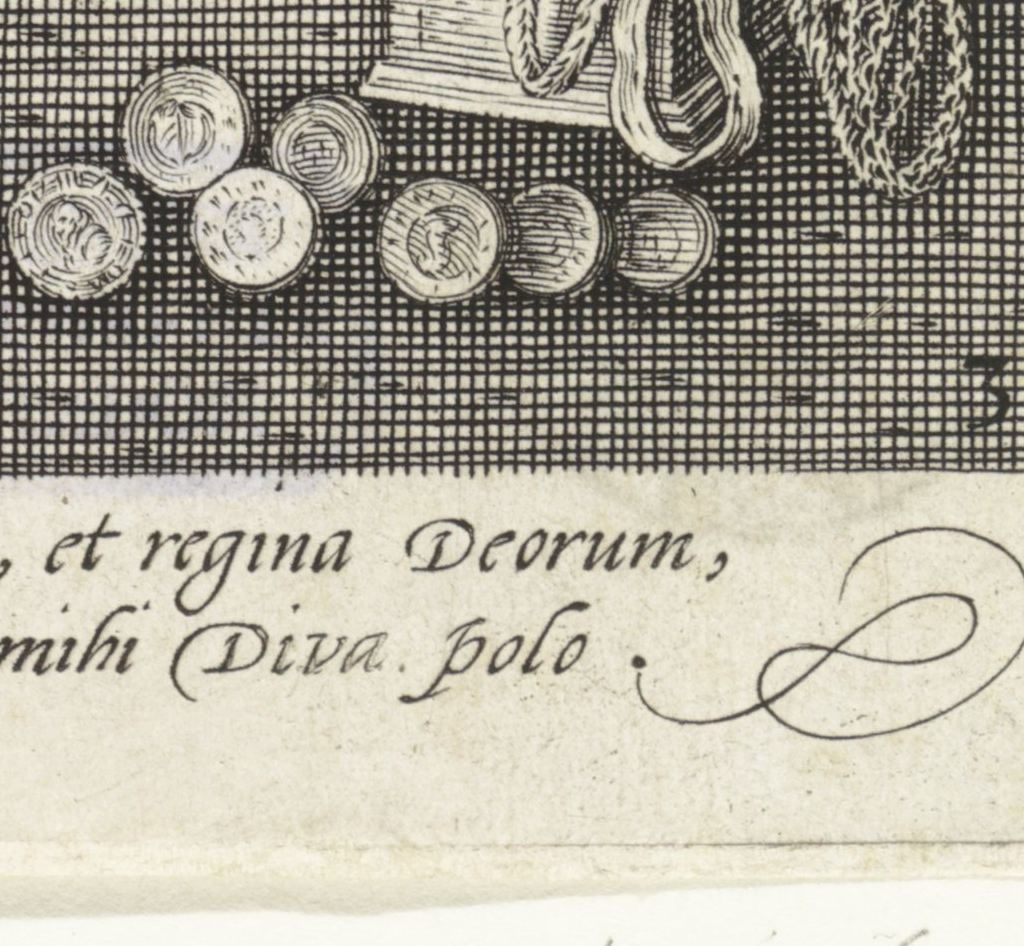 3
, et regina Deorum,
mihi Diva polo.